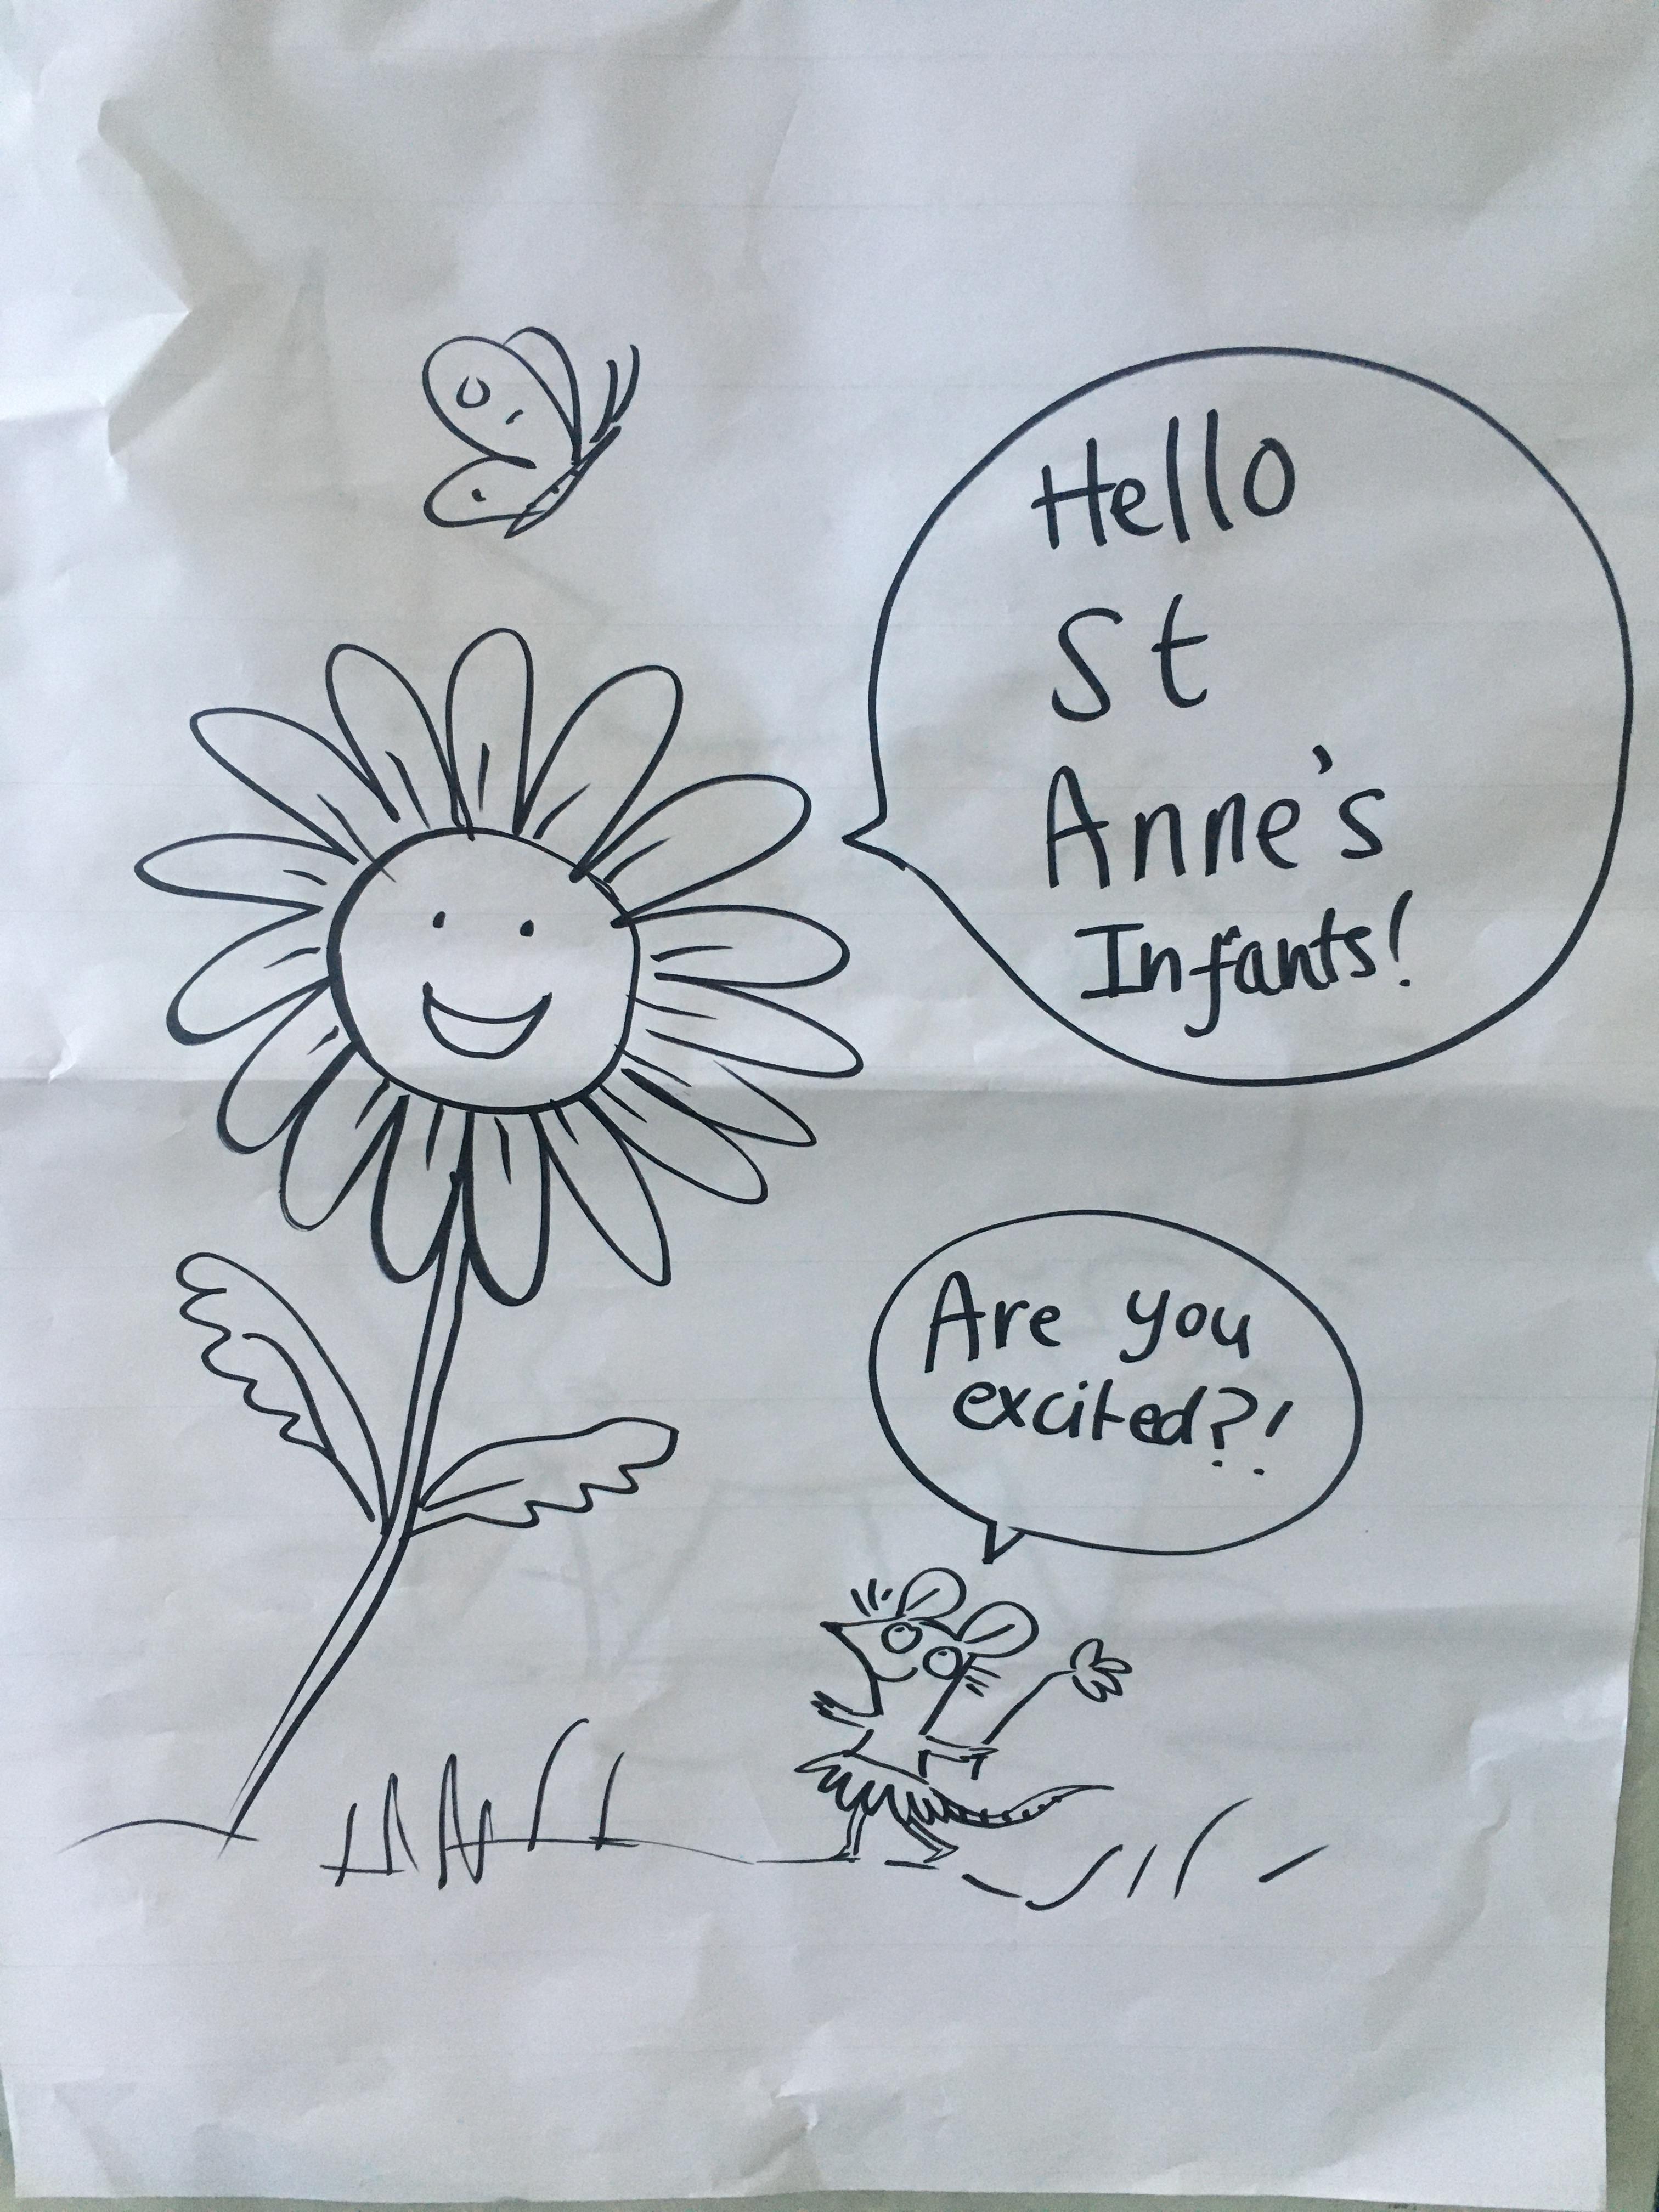 Hello
St
Anne's
Infants!
Are you
excited?!